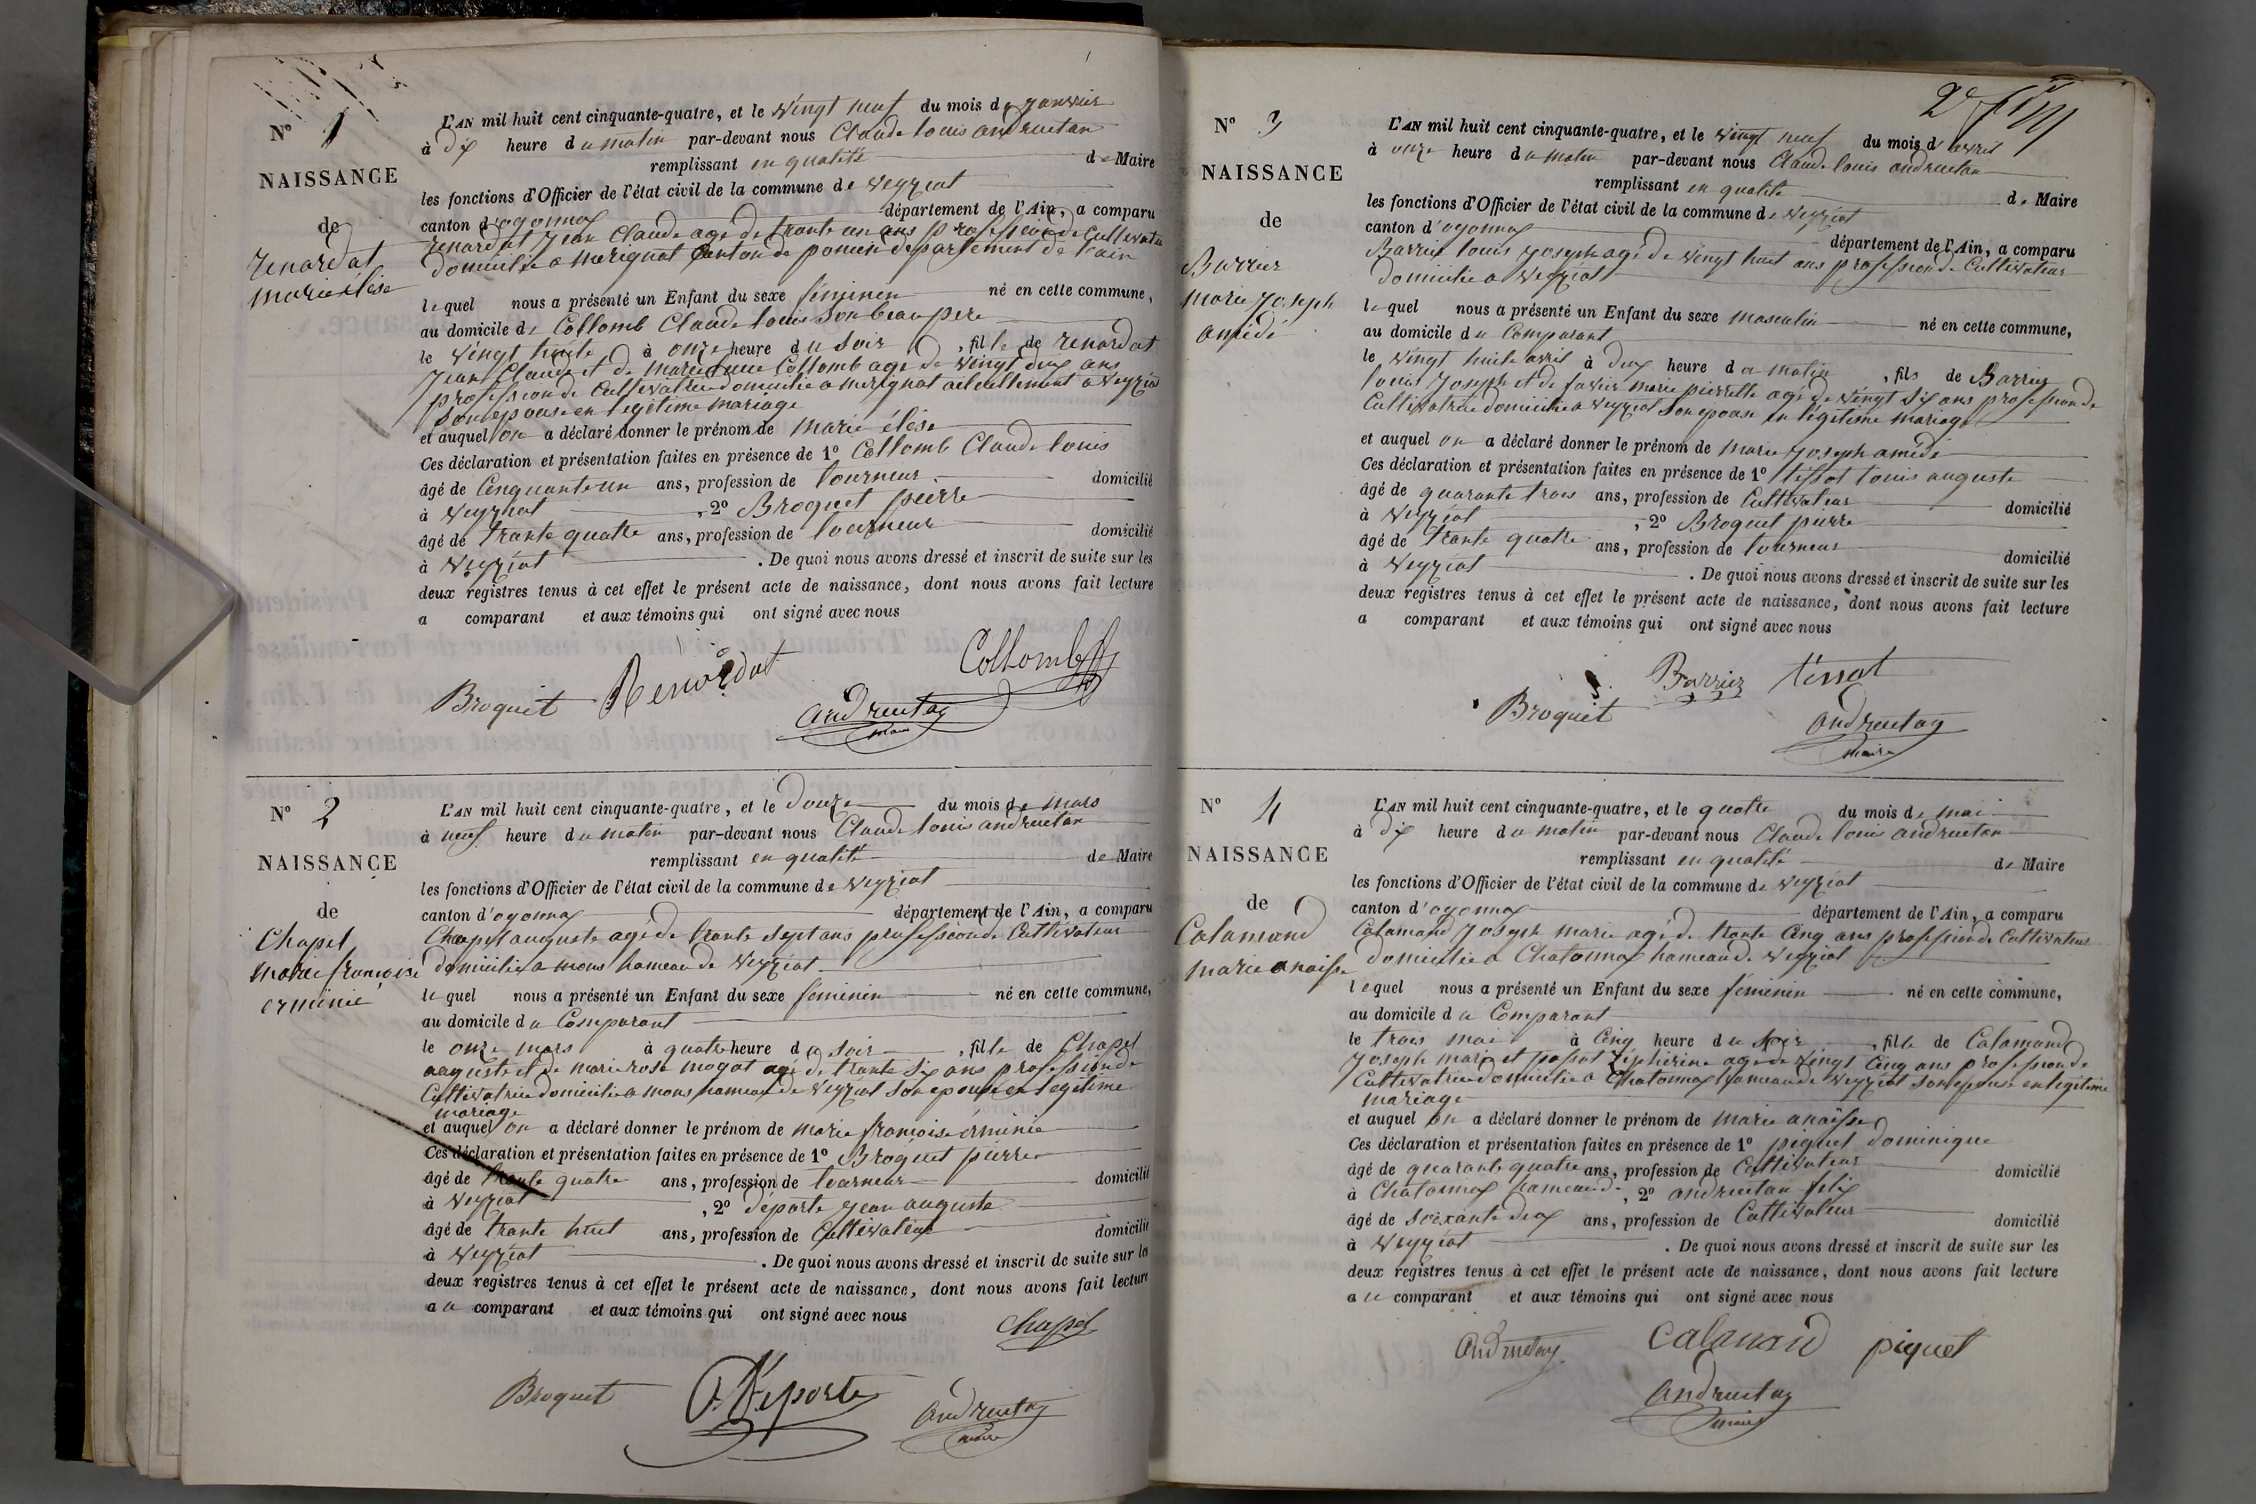 N° 1
NAISSANCE
de
renardat
marie élise
L'AN mil huit cent cinquante-quatre, et le vingt neuf du mois de janvier
à dix heure du matin par-devant nous Claude louis andruetan
remplissant en qualité de Maire
les fonctions d'Officier de l'état civil de la commune de veyziat
canton d'oyonnax département de l'Ain, a comparu
renardat jean Claude age de trante un ans profession de Cultivateur
domicilié a merignat Canton de poncin departement de l'ain
lequel nous a présenté un Enfant du sexe féminin né en cette commune,
au domicile de Collomb Claude louis son beau pere
le vingt huite à onze heure du soir, fille de renardat
jean Claude et de marie Collomb age de vingt dix ans
profession de Cultivatrice domicilié a merignat actuellement a veyziat
son epouse en legitime mariage
et auquel on a déclaré donner le prénom de marie élise
Ces déclaration et présentation faites en présence de 1° Collomb Claude louis
âgé de Cinquante un ans, profession de tourneur domicilié
à veyziat, 2° Broquet pierre
âgé de trante quatre ans, profession de tourneur domicilié
à veyziat. De quoi nous avons dressé et inscrit de suite sur les
deux registres tenus à cet effet le présent acte de naissance, dont nous avons fait lecture
a comparant et aux témoins qui ont signé avec nous
Collomb
Broquet Renardat
andruetan
maire
N° 2
NAISSANCE
de
Chapel
marie françoise
erminie
L'AN mil huit cent cinquante-quatre, et le douze du mois de mars
à neuf heure du matin par-devant nous Claude louis andruetan
remplissant en qualité de Maire
les fonctions d'Officier de l'état civil de la commune de veyziat
canton d'oyonnax département de l'Ain, a comparu
Chapel auguste age de trante sept ans profession de Cultivateur
domicilié a mons hameau de veyziat
lequel nous a présenté un Enfant du sexe féminin né en cette commune,
au domicile du Comparant
le onze mars à quatre heure du soir, fille de Chapel
auguste et de marie rose mogat agé de trante six ans profession de
Cultivatrice domicilié a mons hameau de veyziat son epouse en legitime
mariage
et auquel on a déclaré donner le prénom de marie françoise érminie
Ces déclaration et présentation faites en présence de 1° Broquet pierre
âgé de trante quatre ans, profession de tourneur domicilié
à veyziat, 2° déporte jean auguste
âgé de trante huit ans, profession de Cultivateur domicilié
à veyziat. De quoi nous avons dressé et inscrit de suite sur les
deux registres tenus à cet effet le présent acte de naissance, dont nous avons fait lecture
au comparant et aux témoins qui ont signé avec nous
Chapel
Broquet Deporte andruetan
maire
N° 3
NAISSANCE
de
Barrier
marie joseph
amédé
L'AN mil huit cent cinquante-quatre, et le vingt neuf du mois d'avril
à onze heure du matin par-devant nous Claude louis andruetan
remplissant en qualité de Maire
les fonctions d'Officier de l'état civil de la commune de veyziat
canton d'oyonnax département de l'Ain, a comparu
Barrier louis joseph agé de vingt huit ans profession de Cultivateur
domicilié a veyziat
lequel nous a présenté un Enfant du sexe masculin né en cette commune,
au domicile du Comparant
le vingt huite avril à deux heure du matin, fils de Barrier
louis joseph et de favier marie pierrette agé de vingt six ans profession de
Cultivatrice domicilié a veyziat son epouse en légitime mariage
et auquel on a déclaré donner le prénom de marie joseph amédé
Ces déclaration et présentation faites en présence de 1° téssot louis auguste
âgé de quarante trois ans, profession de Cultivateur domicilié
à veyziat, 2° Broquet pierre
âgé de trante quatre ans, profession de tourneur domicilié
à veyziat. De quoi nous avons dressé et inscrit de suite sur les
deux registres tenus à cet effet le présent acte de naissance, dont nous avons fait lecture
a comparant et aux témoins qui ont signé avec nous
Barrier téssot
Broquet
andruetan
maire
N° 4
NAISSANCE
de
Calamand
marie anaisse
L'AN mil huit cent cinquante-quatre, et le quatre du mois de mai
à dix heure du matin par-devant nous Claude louis andruetan
remplissant en qualité de Maire
les fonctions d'Officier de l'état civil de la commune de veyziat
canton d'oyonnax département de l'Ain, a comparu
Calamand joseph marie agé de trante Cinq ans profession de Cultivateur
domicilié a Chatonnax hameau de veyziat
lequel nous a présenté un Enfant du sexe féminin né en cette commune,
au domicile du Comparant
le trois mai à Cinq heure du soir, fille de Calamand
joseph marie et age de vingt Cinq ans profession de
Cultivatrice domicilié a Chatonnax hameau de veyziat son epouse en legitime
mariage
et auquel on a déclaré donner le prénom de marie anaïsse
Ces déclaration et présentation faites en présence de 1° piquet dominique
âgé de quarante quatre ans, profession de Cultivateur domicilié
à Chatonnax hameau de, 2° andruetan felix
âgé de soixante deux ans, profession de Cultivateur domicilié
à veyziat. De quoi nous avons dressé et inscrit de suite sur les
deux registres tenus à cet effet le présent acte de naissance, dont nous avons fait lecture
au comparant et aux témoins qui ont signé avec nous
andruetan calamand piquet
andruetan
maire